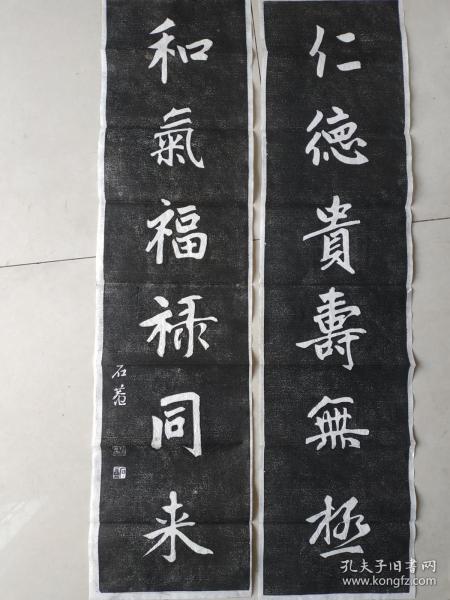 仁德貴壽無極
和氣福祿同来
石菴
孔夫子旧书网
www.kongfz.com